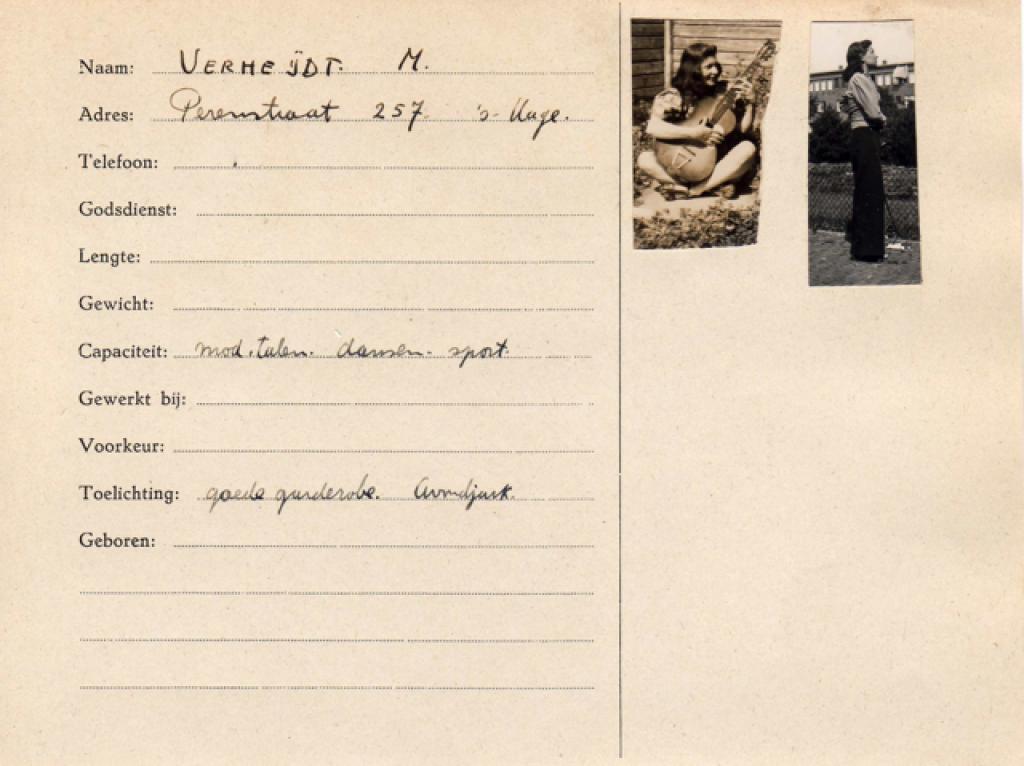 Naam: VERHEIJDT. M.
Adres: Perenstraat 257. 's-Hage.
Telefoon:
Godsdienst:
Lengte:
Gewicht:
Capaciteit: mod. talen. dansen. sport.
Gewerkt bij:
Voorkeur:
Toelichting: goede garderobe. Avondjurk.
Geboren: